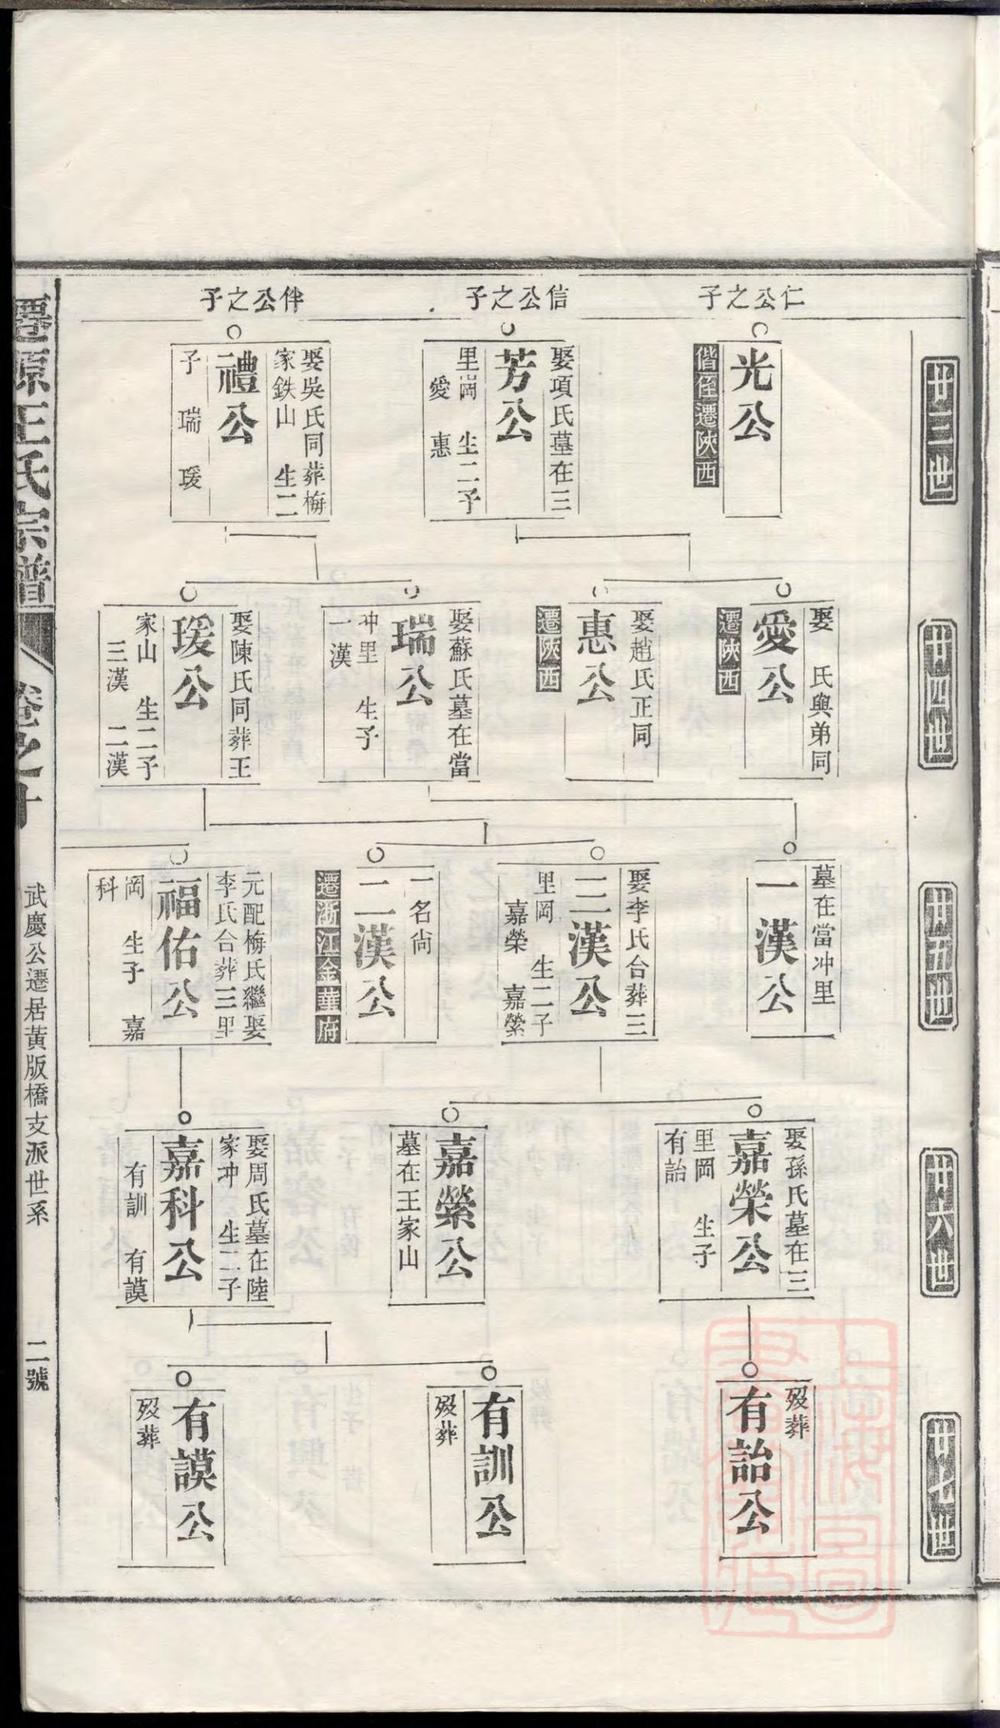 仁公之子
信公之子
伴公之子
廿三世
光公
偕侄遷陝西
娶項氏墓在三
芳公
里岡 生二子
愛 惠
娶吳氏同葬梅
家鉄山 生二
禮公
子 瑞 瑗
廿四世
娶 氏與弟同
愛公
遷陝西
娶趙氏正同
惠公
遷陝西
娶蘇氏墓在當
瑞公
冲里 生子
一漢
娶陳氏同葬王
瑗公
家山 生二子
三漢 二漢
廿五世
墓在當冲里
一漢公
娶李氏合葬三
三漢公
里岡 生二子
嘉榮 嘉縈
一名尙
二漢公
遷浙江金華府
元配梅氏繼娶
李氏合葬三里
福佑公
岡 生子 嘉
科
廿六世
娶孫氏墓在三
嘉榮公
里岡 生子
有詒
嘉縈公
墓在王家山
娶周氏墓在陸
家冲 生二子
嘉科公
有訓 有謨
廿七世
歿葬
有詒公
有訓公
歿葬
有謨公
歿葬
遷源王氏宗譜 卷之十 武慶公遷居黃版橋支派世系 二號